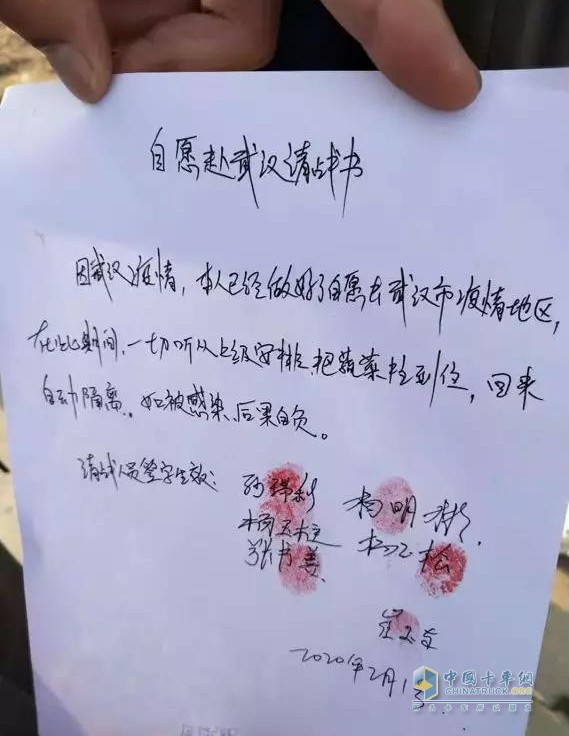 自愿赴武汉请战书
因武汉疫情,本人已经做好了自愿去武汉市疫情地区,
在此期间,一切听从上级安排,把蔬菜拉到位,回来
自动隔离.如被感染后果自负。
请战人员签字生效:
孙瑞利 杨明彬
杨玉柱 松
张书姜
2020年2月1
中国卡车网
CHINATRUCK.ORG